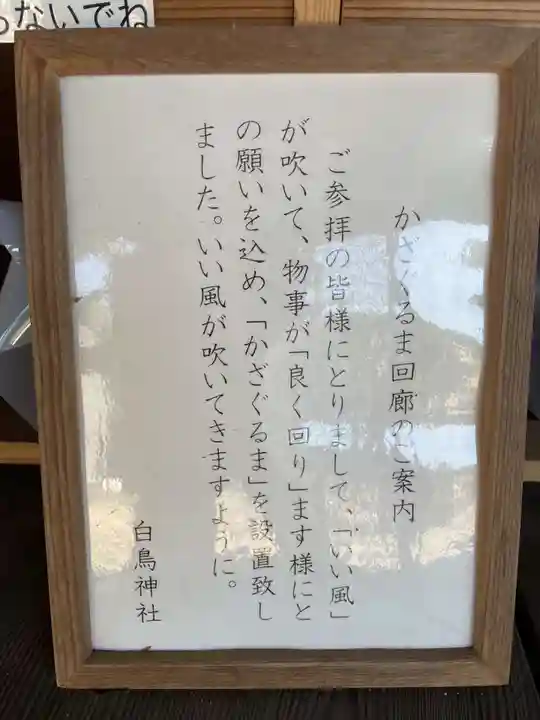 ないでね
かざぐるま回廊のご案内
ご参拝の皆様にとりまして、「いい風」
が吹いて、物事が「良く回り」ます様にと
の願いを込め、「かざぐるま」を設置致し
ました。いい風が吹いてきますように。
白鳥神社